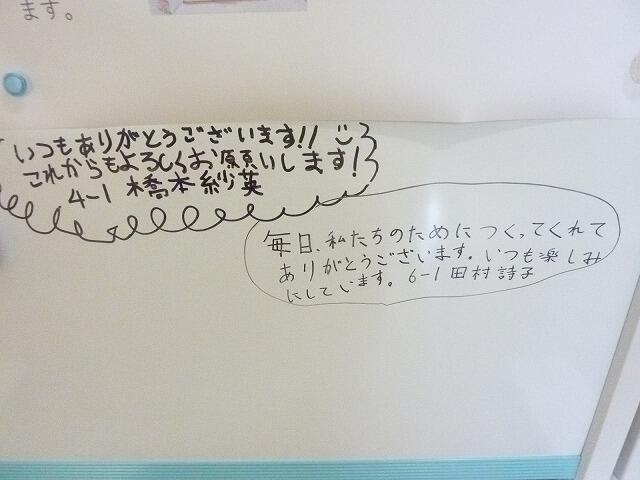 ます。
いつもありがとうございます!!
これからもよろしくお願いします!
4-1 橋本 紗英
毎日、私たちのためにつくってくれて
ありがとうございます。いつも楽しみ
にしています。6-1 田村 詩子